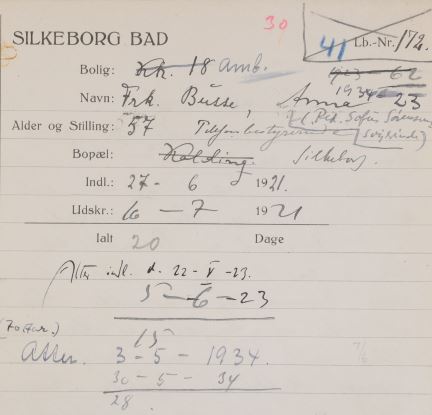 30
SILKEBORG BAD
41 Lb.-Nr. 172.
Bolig: Kk. 18 Amb. 1923 - 62
1934 - 23
Navn: Frk. Busse, Anna
Alder og Stilling: 57 Telefonbestyrerinde (Ptk. Sofus Sørensens
svigerinde)
Bopæl: Kolding. Silkeborg.
Indl.: 27 - 6 1921.
Udskr.: 6 - 7 1921
Ialt 20 Dage
Atter indl. d. 22 - V - 23.
5 - 6 - 23
(70 Aar.) 15
Atter. 3 - 5 - 1934. 7/6
30 - 5 - 34
28